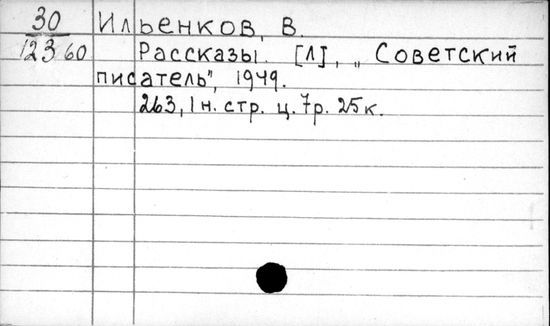 30
12360
Ильенков, В.
Рассказы. [Л], „Советский
писатель", 1949.
263, 1 н. стр. ц. 7р. 25к.